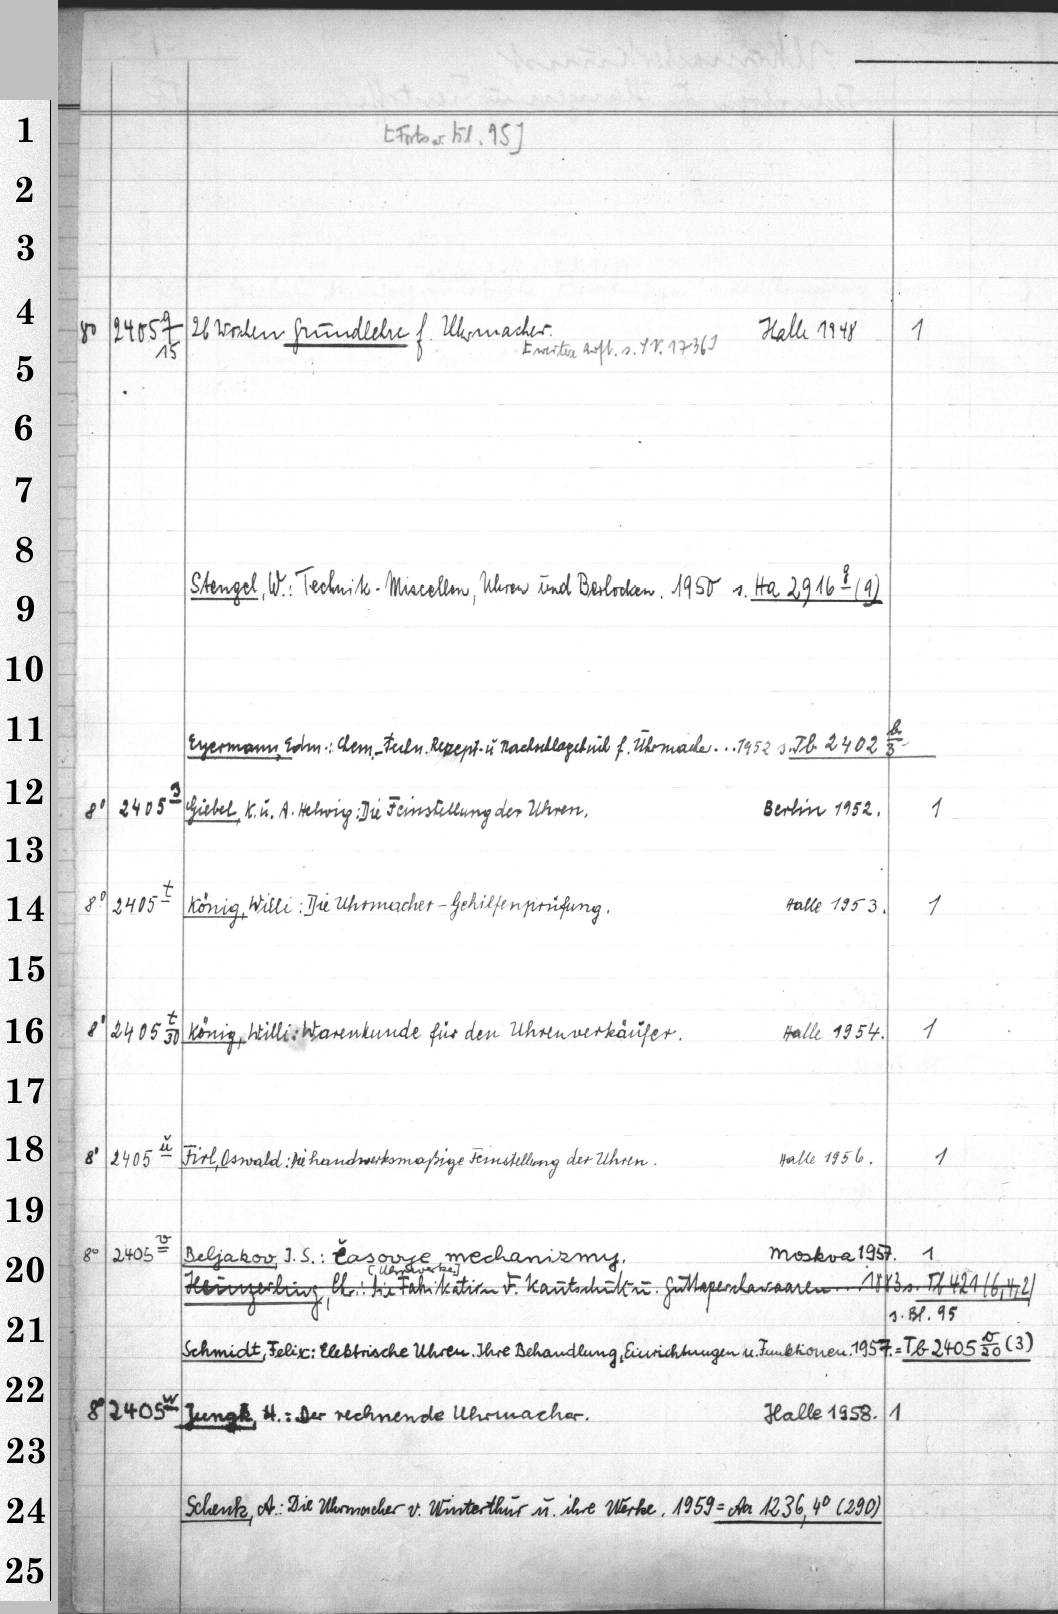 [Forts. v. Bl. 95]
8° 2405 q/15 26 Wochen Grundlehre f. Uhrmacher. Halle 1948 1
Aufl. s. 1736]
Stengel, W.: Technik-Miscellen, Uhren und Berlocken. 1950 s. Ha 2916 g (9)
Eyermann, Edm.: Chem.-techn. Rezept- u Nachschlagebuch f. Uhrmacher... 1952 s. Tb 2402 b/3
8° 2405 s Giebel, K. u. A. Helwig: Die Feinstellung der Uhren. Berlin 1952. 1
8° 2405 t König, Willi: Die Uhrmacher-Gehilfenprüfung. Halle 1953. 1
8° 2405 t/30 König, Willi: Warenkunde für den Uhrenverkäufer. Halle 1954. 1
8° 2405 u Firl, Oswald: Die handwerksmäßige Feinstellung der Uhren. Halle 1956. 1
8° 2405 v Beljakov, I. S.: Časovye mechanizmy. Moskva 1957. 1
[Uhrwerke]
Heinzerling, Chr.: Die Fabrikation v. Kautschuk u. Guttaperchawaaren... 1883 s. Tb 421 (6,4,2)
s. Bl. 95
Schmidt, Felix: Elektrische Uhren. Ihre Behandlung, Einrichtungen u. Funktionen. 1957. = Tb 2405 v/20 (3)
8° 2405 w Jungk, H.: Der rechnende Uhrmacher. Halle 1958. 1
Schenk, A.: Die Uhrmacher v. Winterthur u. ihre Werke. 1959 = Aa 1236, 4° (290)
1
2
3
4
5
6
7
8
9
10
11
12
13
14
15
16
17
18
19
20
21
22
23
24
25